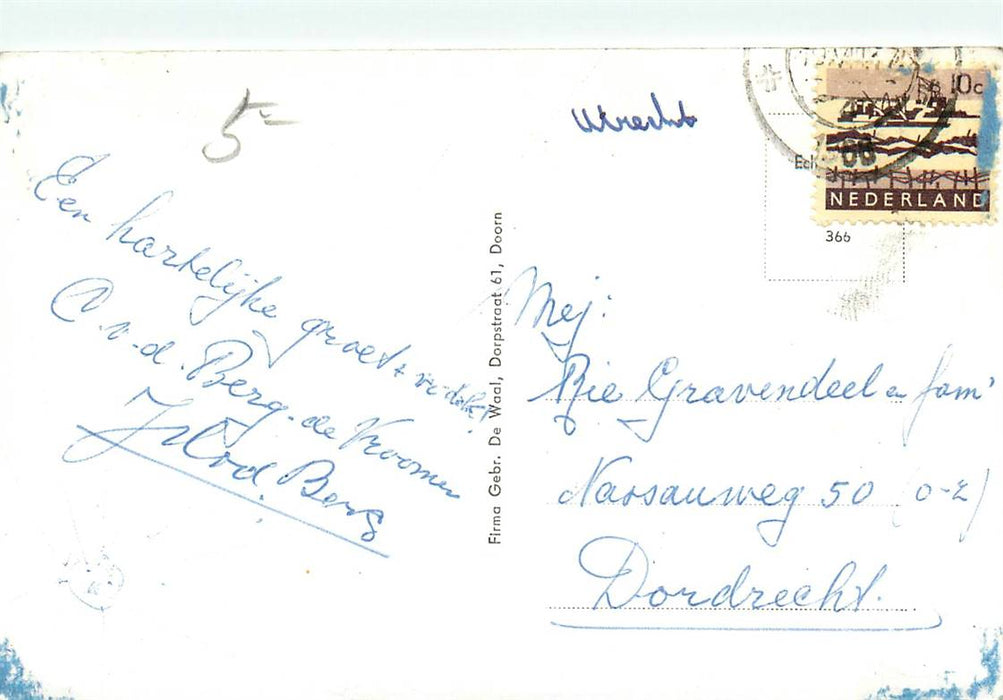 5-
Utrecht
10c
NEDERLAND
366
Een hartelijke groet
C. v. d. Berg - de Vroomen
v.d. Berg
Firma Gebr. De Waal, Dorpstraat 61, Doorn
Mej:
Rie Gravendeel en fam'
Nassauweg 50 (o-z)
Dordrecht.